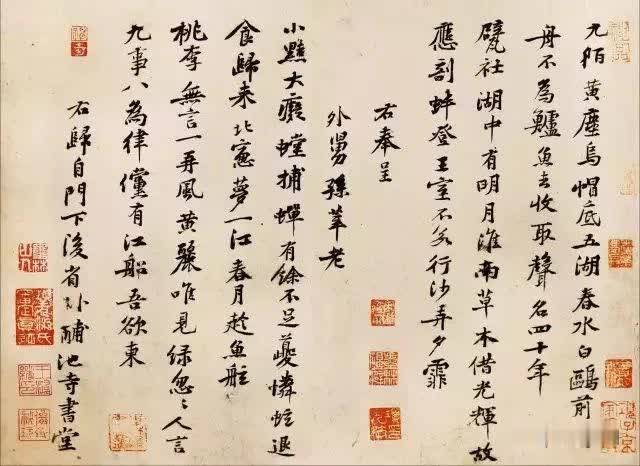 九陌黄塵烏帽底五湖春水白鷗前
舟不為鱸魚去收取聲名四十年
甓社湖中有明月淮南草木借光輝故
應剖蚌登王室不若行沙弄夕霏
右奉呈
外舅孫莘老
小黠大癡螳捕蟬有餘不足夔憐蚿退
食歸來北窻夢一江春月趁魚船
桃李無言一再風黄鸝唯見緑怱〻人言
九事八為律儻有江船吾欲東
右歸自門下後省卧酺池寺書堂